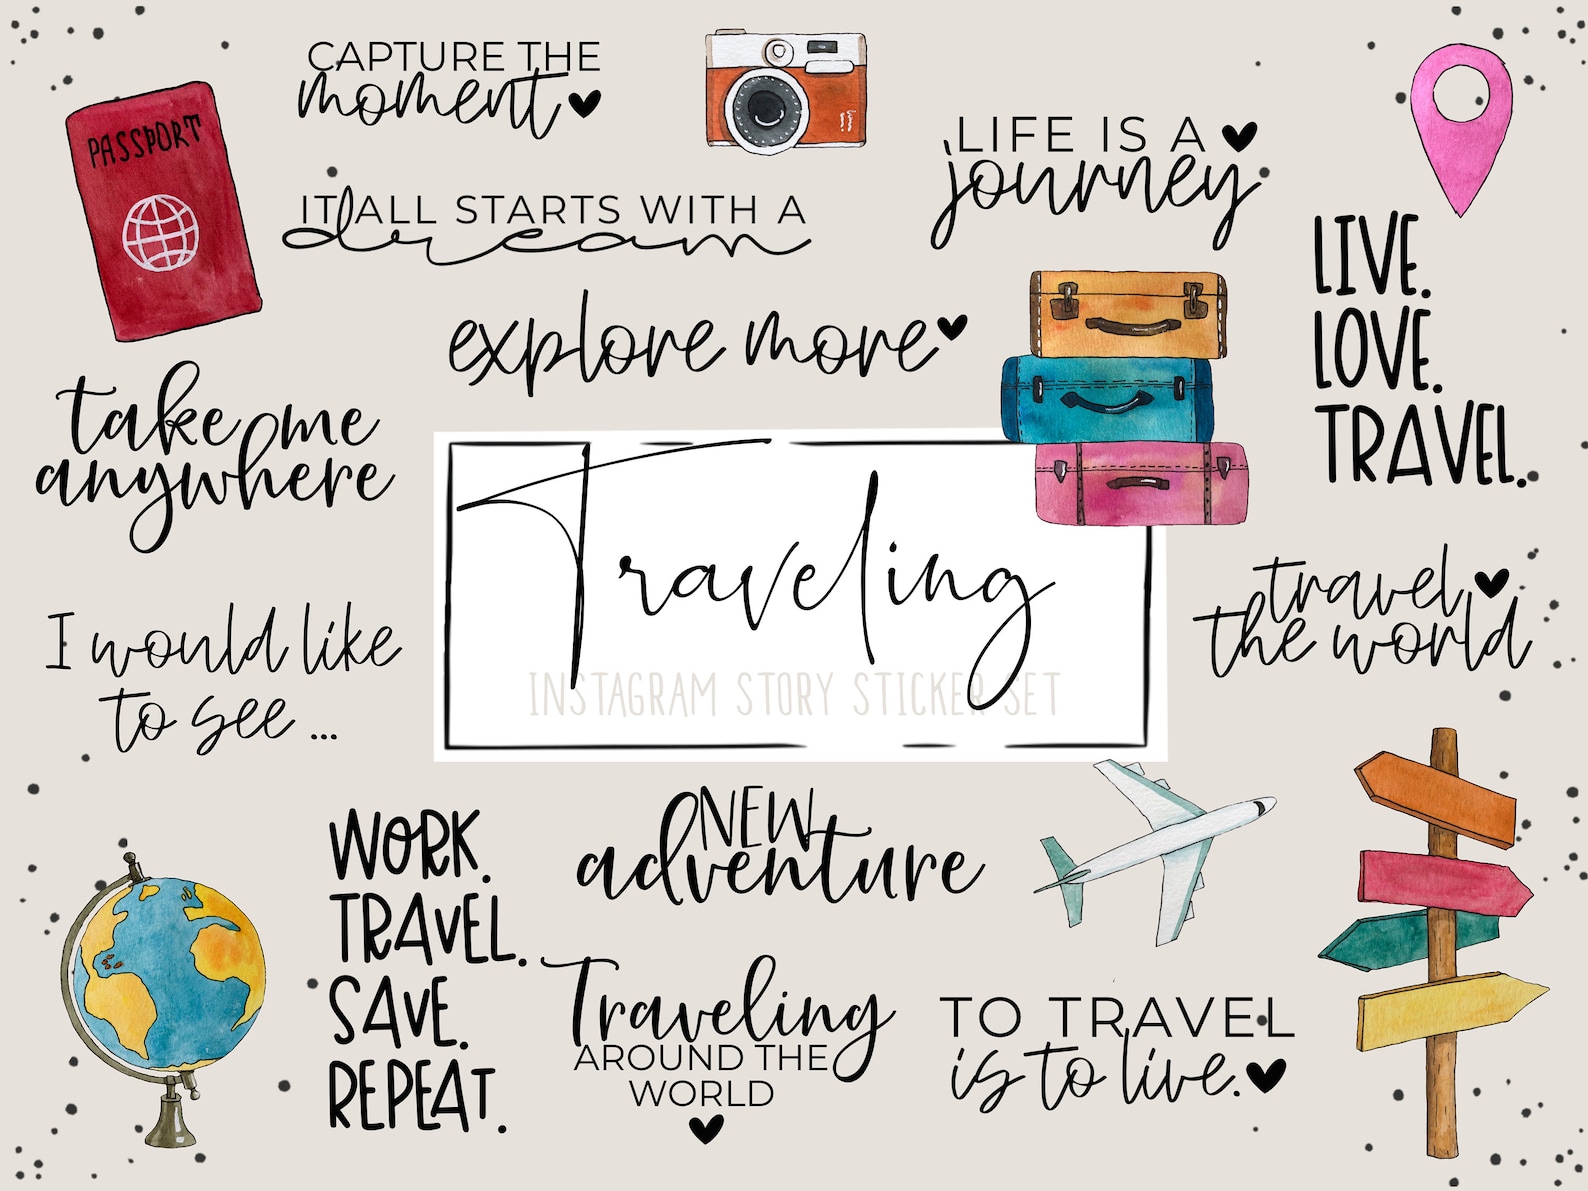 CAPTURE THE
moment
PASSPORT
LIFE IS A
journey
IT ALL STARTS WITH A
dream
explore more
LIVE.
LOVE.
TRAVEL.
take me
anywhere
Traveling
INSTAGRAM STORY STICKER SET
travel
the world
I would like
to see ...
NEW
adventure
WORK.
TRAVEL.
SAVE.
REPEAT.
Traveling
AROUND THE
WORLD
TO TRAVEL
is to live.